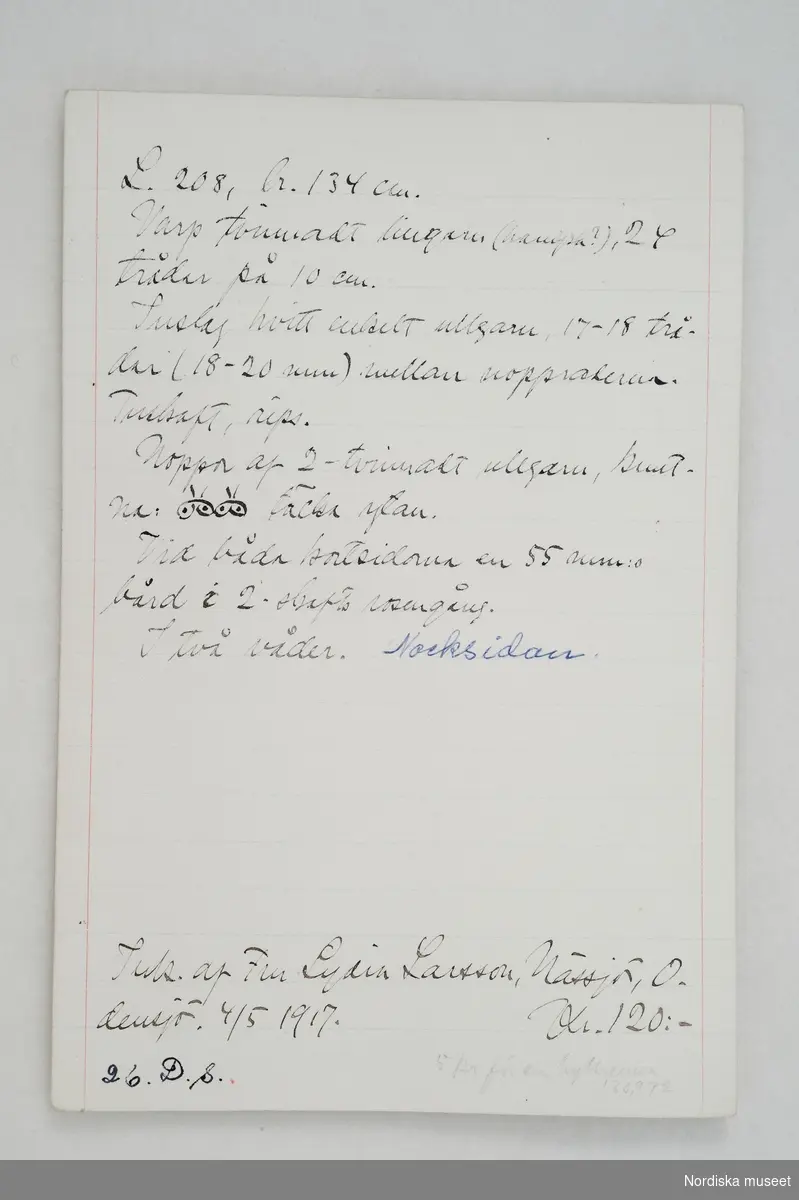 L. 208, br. 134 cm.
Varp tvinnadt lingarn (hampa?), 24
trådar på 10 cm.
Inslag hvitt enkelt ullgarn, 17-18 trå-
dar (18-20 mm) mellan nöppraderna.
Tuskaft, rips.
Noppor af 2-tvinnadt ullgarn, knut-
na: täcka ytan.
Vid båda kortsidorna en 55 mm:s
bård i 2-skafts rosengång.
I två våder. Nocksidan.
Ink. af Fru Lydia Larsson, Nässjö, O-
densjö. 4/5 1917. Kr. 120:-
26. D. S.
5 kr för en
Nordiska museet